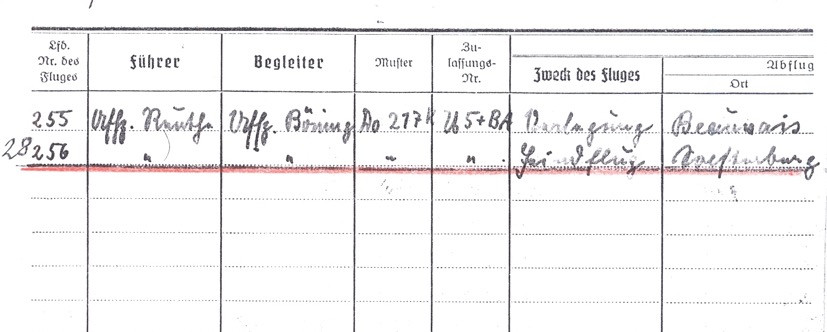 Lfd. Nr. des Fluges Führer Begleiter Muster Zu-lassungs-Nr. Zweck des Fluges Abflug
Ort
255 Uffz. Reuthe Uffz. Böning Do 217K U5+BA Verlegung Beauvais
28 256 " " " " Feindflug Soesterberg